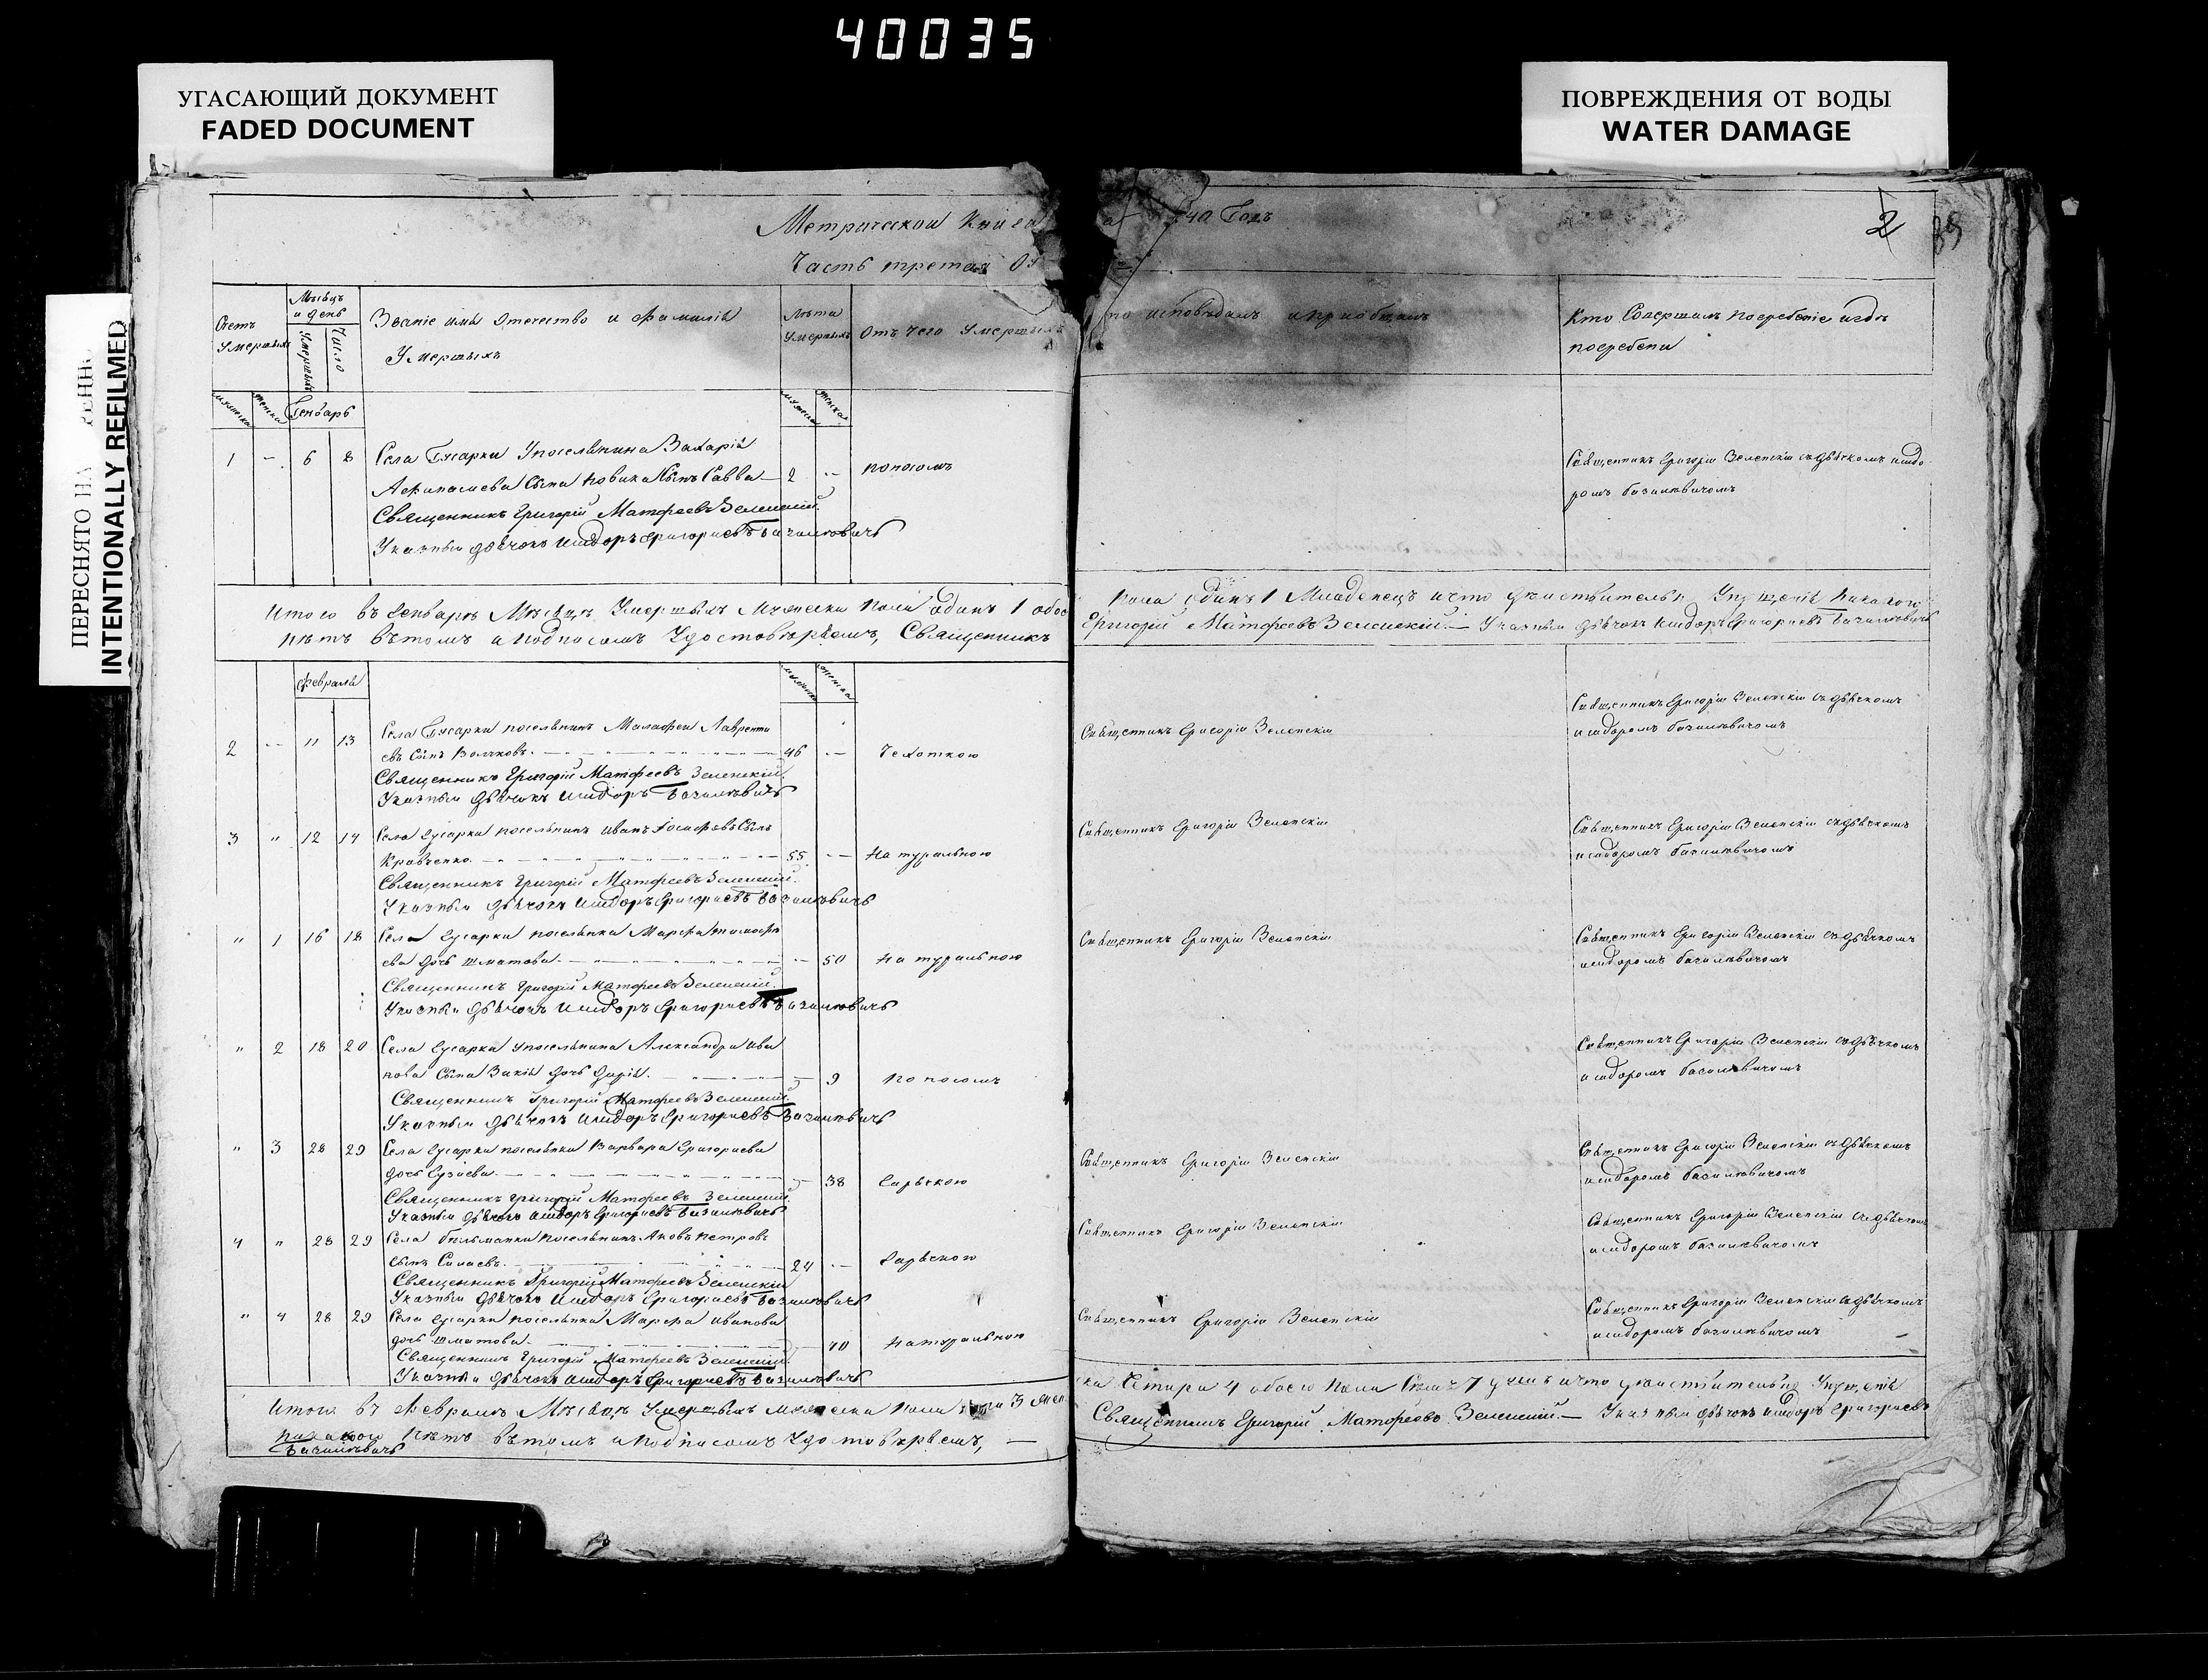 40035
УГАСАЮЩИЙ ДОКУМЕНТ
FADED DOCUMENT
ПОВРЕЖДЕНИЯ ОТ ВОДЫ
WATER DAMAGE
ПЕРЕСНЯТО НА
INTENTIONALLY REFILMED
Метрической Книги
40 Годъ
2
39
Часть третая
Счетъ Умершихъ
Мѣсяцъ и день
Число
Званіе имя отечество и фамилія Умершихъ
Лѣта Умершихъ
Отъ чего Умершихъ
исповѣдалъ и пріобщалъ
Кто Совершалъ погребеніе и гдѣ погребени
Генварь
1 - 6 8 Села Гусарки Упоселянина Захарія
сына Новика Сынъ Савва 2 - поносомъ
Священникъ Григорій Матфеевъ Зеленскій
Указный дьячокъ Исидоръ Григориевъ Базилювичь
Священникъ Григорій Зеленскій съ дьячкомъ исидоромъ базилювичомъ
Итого въ Генварѣ Мѣсяцѣ Умершихъ Мужеска пола одинъ 1 обоего пола одинъ 1 Младенецъ и что дѣйствительно Упущенія никакого
нѣтъ вътомъ и подписомъ Удостовѣряемъ, Священникъ Григорій Матфеевъ Зеленскій. Указный дьячокъ Исидоръ Григориевъ Базилювичь
Февраля
2 - 11 13 Села Гусарки поселянинъ Малафей Лаврентиевъ Сынъ Волчковъ 46 - Чехоткою
Священникъ Григорій Матфеевъ Зеленскій
Указный дьячокъ Исидоръ Базилювичь
Священникъ Григорій Зеленскій
Священникъ Григорій Зеленскій съ дьячкомъ исидоромъ базилювичомъ
3 " 12 14 Села Гусарки поселянинъ Иванъ Сынъ
Кравченко 55 - Натуральною
Священникъ Григорій Матфеевъ Зеленскій
Указный дьячокъ Исидоръ Григориевъ Базилювичь
Священникъ Григорій Зеленскій
Священникъ Григорій Зеленскій съ дьячкомъ исидоромъ базилювичомъ
" 1 16 18 Села Гусарки поселянка Марфа Тимофеева дочь Шматова - 50 Натуральною
Священникъ Григорій Матфеевъ Зеленскій
Указный дьячокъ Исидоръ Григориевъ Базилювичь
Священникъ Григорій Зеленскій
Священникъ Григорій Зеленскій съ дьячкомъ исидоромъ базилювичомъ
" 2 18 20 Села Гусарки Упоселянина Александра Иванова Сына дочь Дарія - 9 поносомъ
Священникъ Григорій Матфеевъ Зеленскій
Указный дьячокъ Исидоръ Григориевъ Базилювичь
Священникъ Григорій Зеленскій съ дьячкомъ исидоромъ базилювичомъ
" 3 28 29 Села Гусарки поселянка Варвара Григориева
дочь - 38 Гарячкою
Священникъ Григорій Матфеевъ Зеленскій
Указный дьячокъ Исидоръ Григориевъ Базилювичь
Священникъ Григорій Зеленскій
Священникъ Григорій Зеленскій съ дьячкомъ исидоромъ базилювичомъ
4 " 28 29 Села Бильманки поселянинъ Яковъ Петровъ
сынъ Силаевъ 24 - Гарячкою
Священникъ Григорій Матфеевъ Зеленскій
Указный дьячокъ Исидоръ Григориевъ Базилювичь
Священникъ Григорій Зеленскій
Священникъ Григорій Зеленскій съ дьячкомъ исидоромъ базилювичомъ
" 4 28 29 Села Гусарки поселянка Марфа Иванова
дочь Шматова - 40 Натуральною
Священникъ Григорій Матфеевъ Зеленскій
Указный дьячокъ Исидоръ Григориевъ Базилювичь
Священникъ Григорій Зеленскій
Священникъ Григорій Зеленскій съ дьячкомъ исидоромъ базилювичомъ
Итого въ Февралѣ Мѣсяцѣ Умершихъ мужеска пола 3 женска Четыри 4 обоего пола Семь 7 душъ и что дѣйствительно Упущенія
никакого нѣтъ вътомъ и подписомъ Удостовѣряемъ, Священникъ Григорій Матфеевъ Зеленскій. Указный дьячокъ исидоръ Григориевъ
Базилювичь